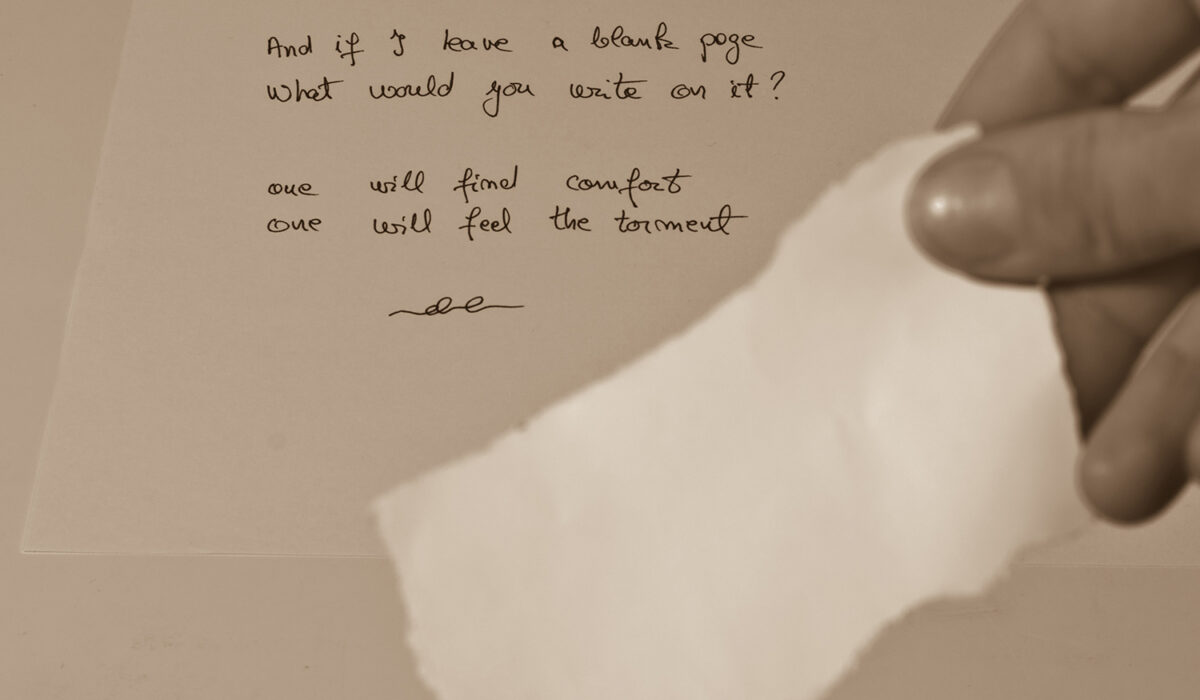 And if I leave a blank page
What would you write on it?
one will find comfort
one will feel the torment